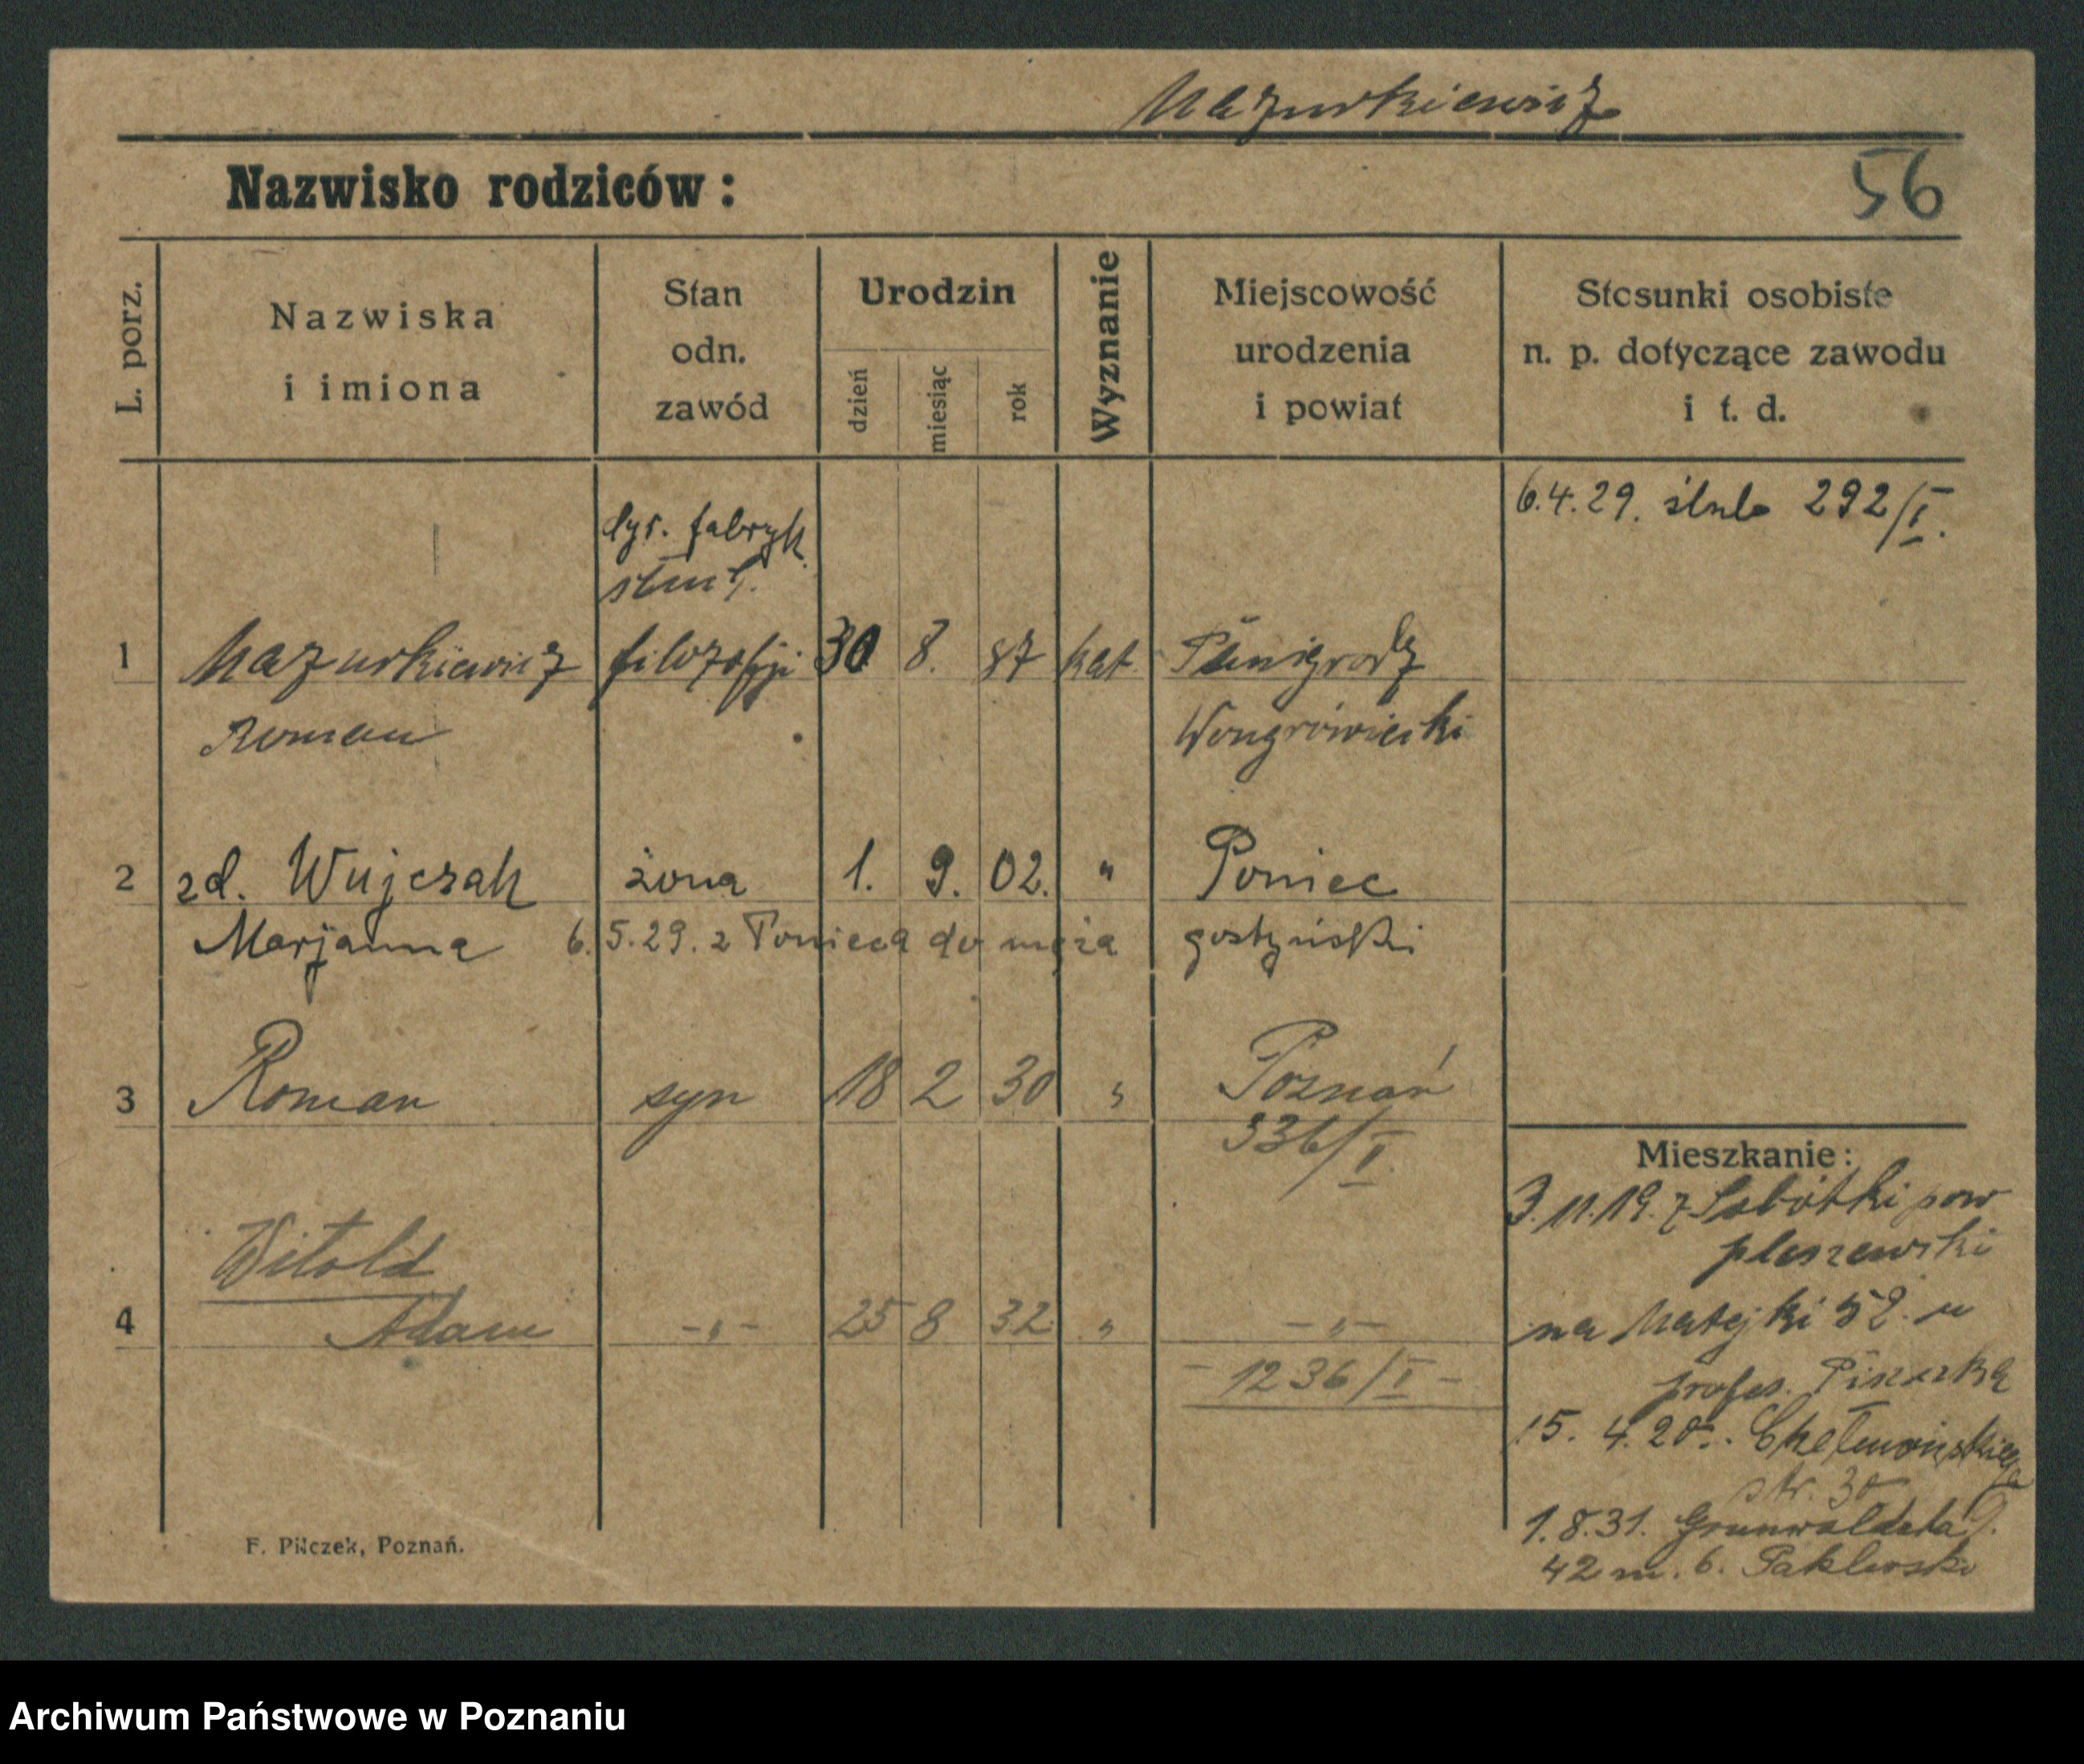 Mazurkiewicz
Nazwisko rodziców:
56
L. porz.
Nazwiska
i imiona
Stan
odn.
zawód
Urodzin
dzień
miesiąc
rok
Wyznanie
Miejscowość
urodzenia
i powiat
Stosunki osobiste
n. p. dotyczące zawodu
i t. d.
6.4.29. ślub 292/I.
dyr. fabryk.
stud.
1 Mazurkiewicz filozofji 30 8. 87 kat. Panigrodz
Roman Wongrówiecki
2 zd. Wujczak żona 1. 9. 02. " Poniec
Marjanna 6.5.29. z Ponieca do męża gostyński
3 Roman syn 18 2 30 " Poznań
336/I.
4 Witold
Adam -"- 25 8 32 " -"-
- 1236/I -
Mieszkanie:
3.11.19. z Sobótki pow
pleszewski
na Matejki 52. u
profes.
15. 4. 20. Chełmońskiego
str. 30
1.8.31. Grunwaldzka
42 m. 6.
F. Pilczek, Poznań.
Archiwum Państwowe w Poznaniu